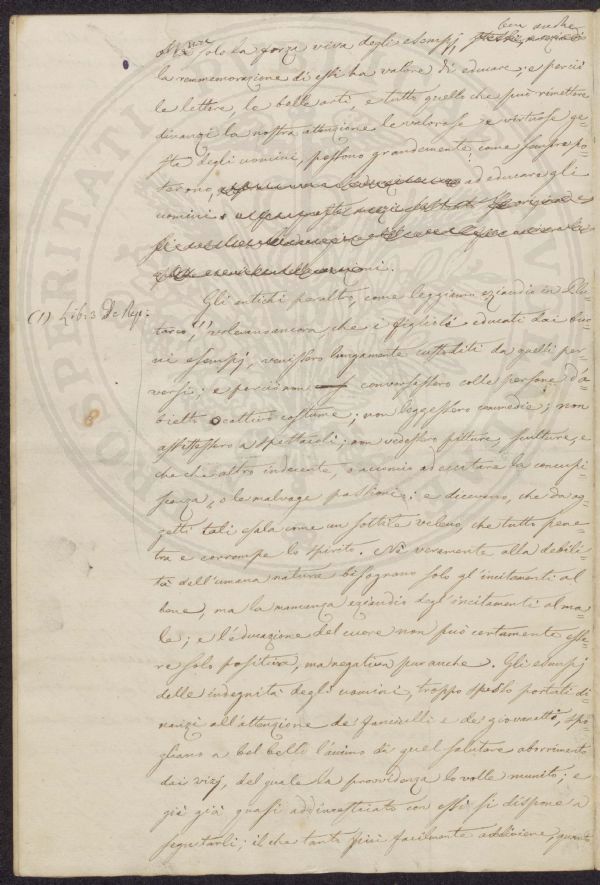 ben anche
Nè solo la forza viva degli esempj,
la rammemorazione di essi ha valore di educare; e perciò
le lettere, le belle arti, e tutto quello che può rimettere
dinanzi la nostra attenzione le valorose e virtuose ge-
sta degli uomini, possono grandemente, come sempre po-
terono, ad educare gli
uomini
Gli antichi peraltro, come leggiamo eziandio in Plu-
(1) Lib. 3 De Rep:
tarco (1), volevano ancora che i figlioli educati dai buo-
ni esempj, venissero lungamente custoditi da quelli per-
versi; e perciò non conversassero colle persone d'a-
bietto o cattivo costume; non leggessero commedie; non
assistessero a spettacoli; non vedessero pitture, sculture, e
che che altro indecente, o acconcio ad eccitare la concupi-
scenza, o le malvage passioni; e dicevano, che da og-
getti tali esala come un sottile veleno che tutto pene-
tra e corrompe lo spirito. Nè veramente alla debili-
tà dell'umana natura bisognano solo gl'incitamenti al
bene, ma la mancanza eziandio degl'incitamenti al ma-
le; e l'educazione del cuore non può certamente esse-
re solo positiva, ma negativa pur anche. Gli esempj
delle indegnità degli uomini, troppo spesso portati di-
nanzi all'attenzione de' fanciulli e de' giovanetti, spo-
gliano a bel bello l'animo di quel salutare aborrimento
dai vizj, del quale la provvidenza lo volle munito; e
già già quasi addimesticato con essi si dispone a
seguitarli; il che tanto più facilmente addiviene, quanto